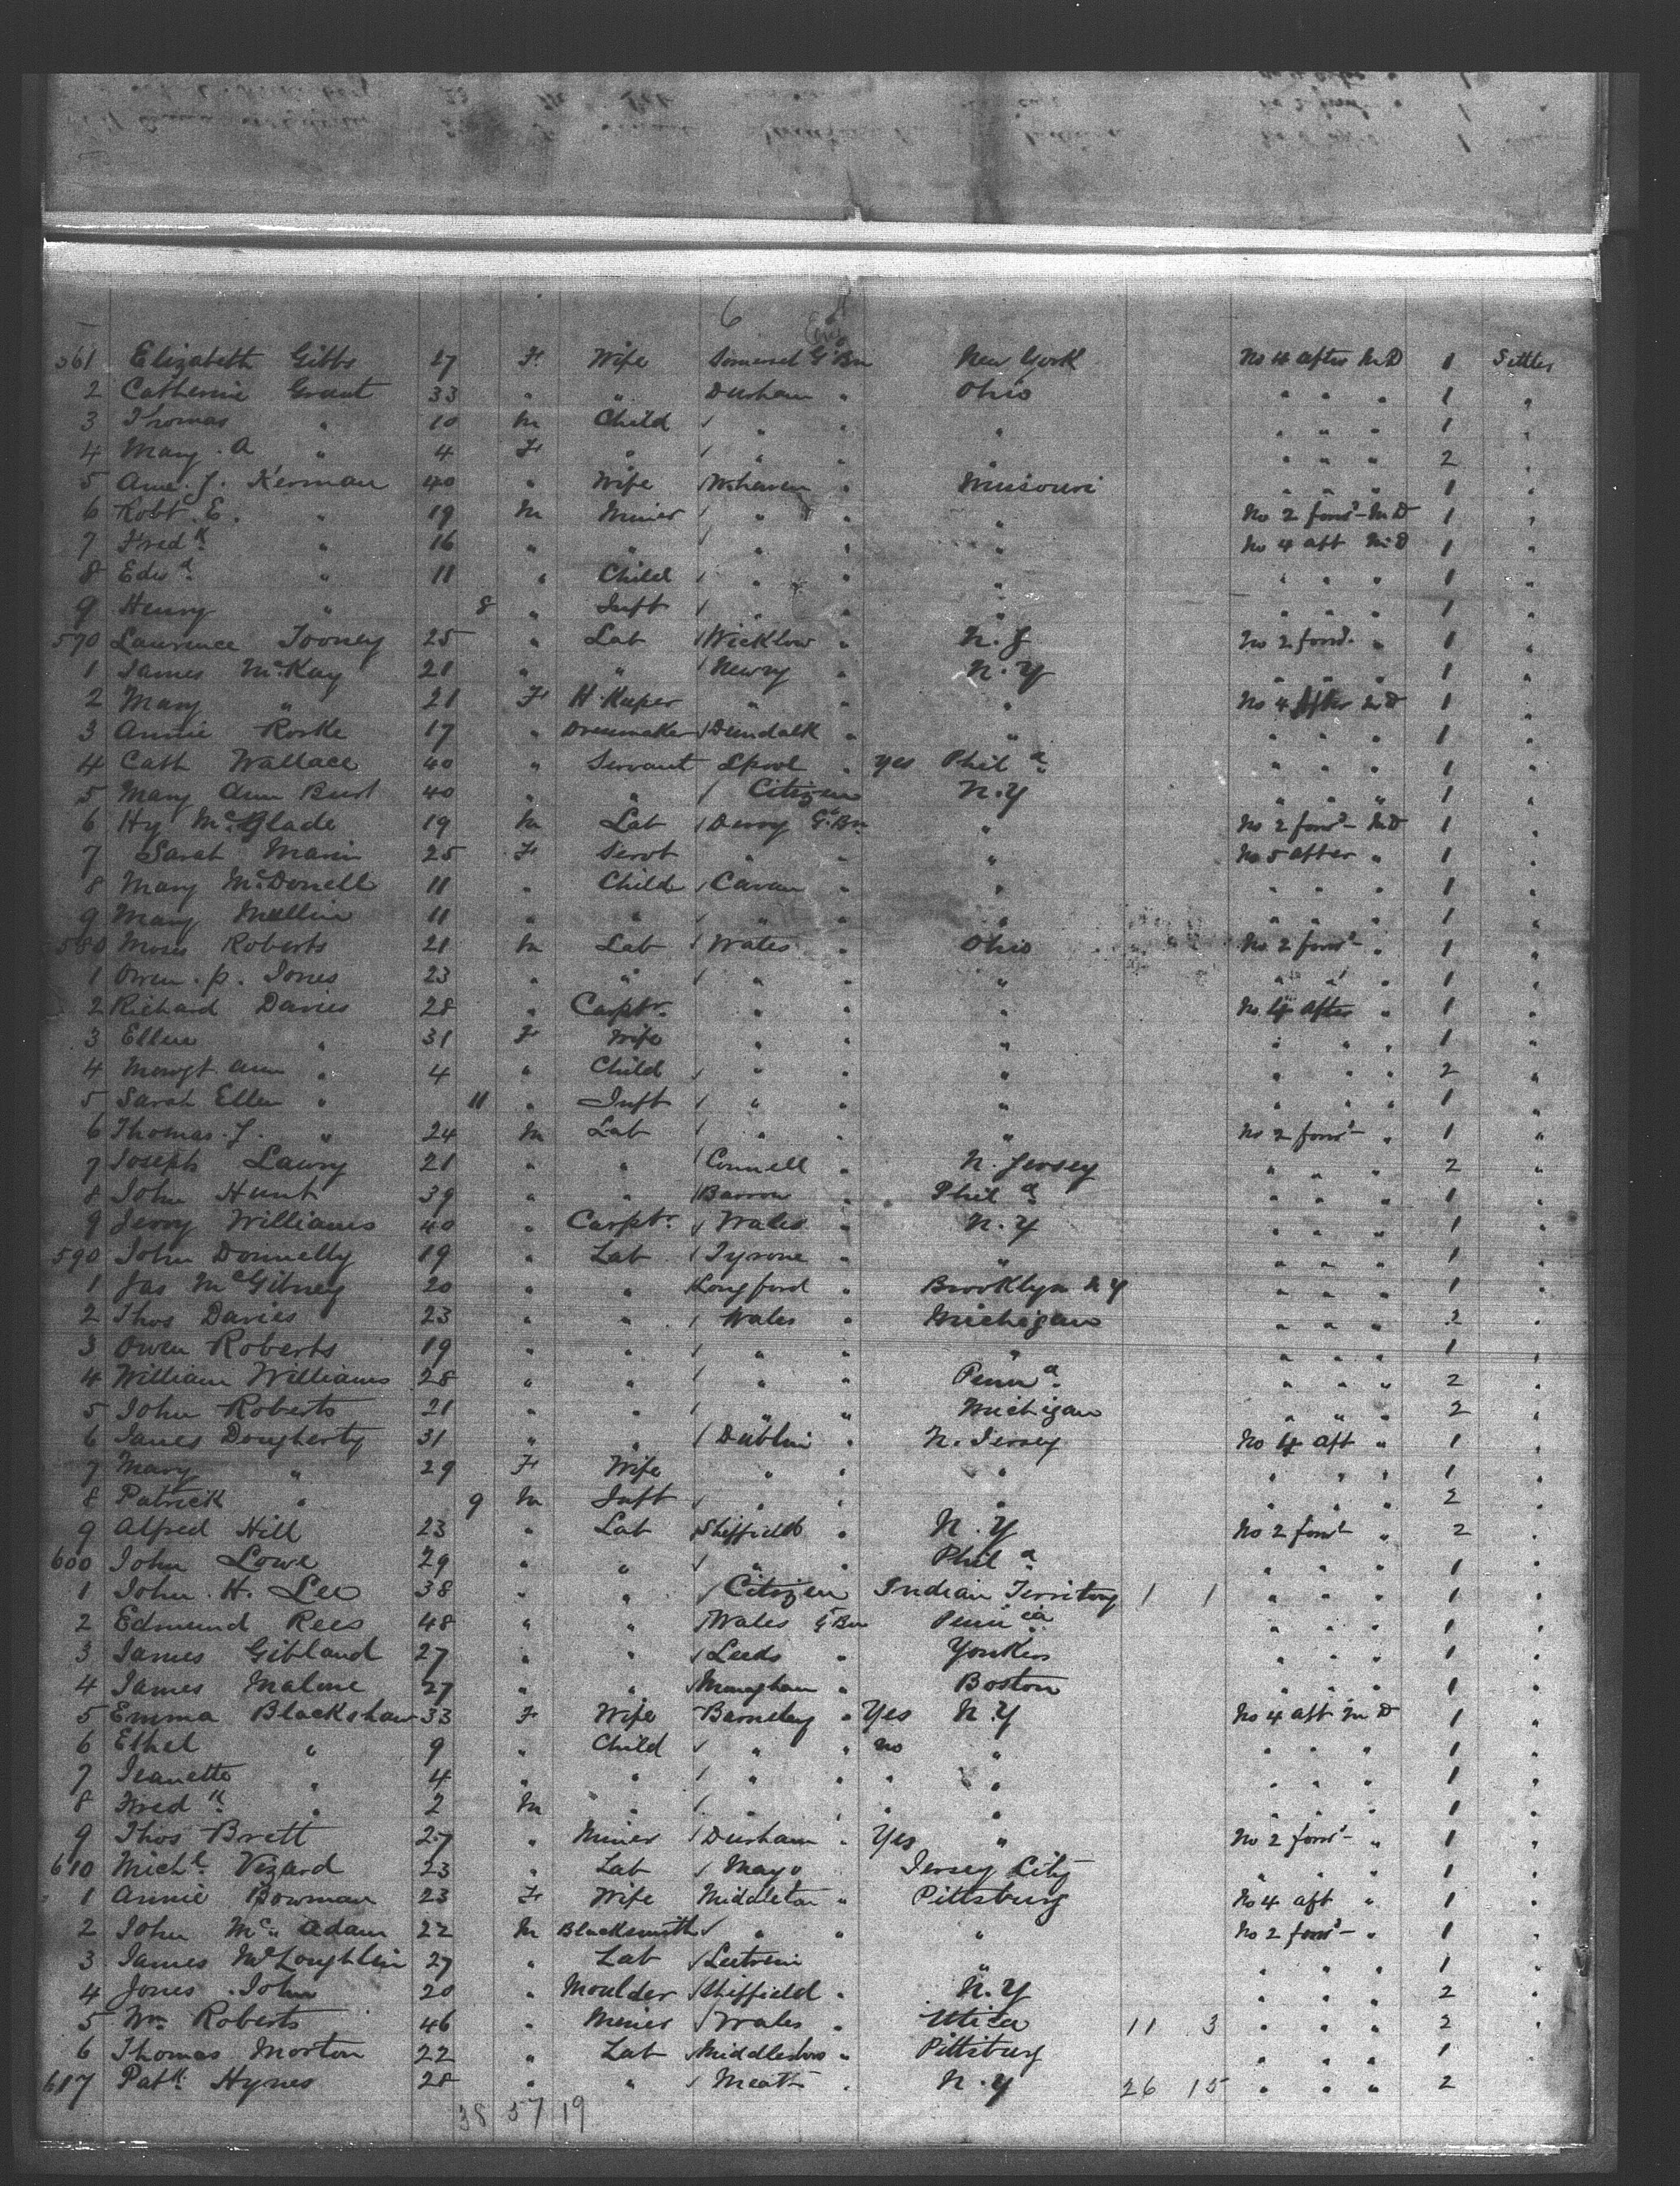 6
561 Elizabeth Gibbs 27 F. Wife Somerset Gt Bn New York No 4 after M.D 1 Settler
2 Catherine Grant 33 " " Durham " Ohio " " " 1 "
3 Thomas " 10 M Child " " " " " " 1 "
4 Mary. A " 4 F " " " " " " " 2 "
5 Ame. J. Kernan 40 " Wife W.haven " Missouri " " " 1 "
6 Robt. E. " 19 M Miner " " " No 2 ford M D 1 "
7 Fredk " 16 " " " " " No 4 aft M.D 1 "
8 Edwd " 11 " Child " " " " " " 1 "
9 Henry " 8 " Inft " " " " " " 1 "
570 Laurence Tooney 25 " Lab Wicklow " N. J No 2 ford. " 1 "
1 James McKay 21 " " Newry " N. Y " " " 1 "
2 Mary " 21 F H. Keeper " " " No 4 after M D 1 "
3 Annie Rorke 17 " Dressmaker Dundalk " " " " " 1 "
4 Cath Wallace 40 " Servant Lpool " Yes Phila " " " 1 "
5 Mary Ann Burt 40 " " Citizen N.Y " " " 1 "
6 Hy McGlade 19 M Lab Derry Gt Bn " No 2 ford M D 1 "
7 Sarah Marin 25 F Servt " " " No 5 after " 1 "
8 Mary McDonell 11 " Child Cavan " " " " " 1 "
9 Mary Mullin 11 " " " " " " " " 1 "
580 Moses Roberts 21 M Lab Wales " Ohio No 2 ford " 1 "
1 Owen. p. Jones 23 " " " " " " " 1 "
2 Richard Davies 28 " Carptr. " " " No 4 after " 1 "
3 Ellen " 31 F Wife " " " " " " 1 "
4 Margt. Ann " 4 " Child " " " " " " 2 "
5 Sarah Ellen " 11 " Inft " " " " " " 1 "
6 Thomas. J. " 24 M Lab " " " No 2 ford " 1 "
7 Joseph Lawry 21 " " Cornwell " N. Jersey " " " 2 "
8 John Hunt 39 " " Barrow " Phila " " " 1 "
9 Jerry Williams 40 " Carptr. Wales " N. Y " " " 1 "
590 John Donnelly 19 " Lab Tyrone " " " " " 1 "
1 Jas McGibney 20 " " Longford " Brooklyn N Y " " " 1 "
2 Thos Davies 23 " " Wales " Michigan " " " 2 "
3 Owen Roberts 19 " " " " " " " " 1 "
4 William Williams 28 " " " " Penna. " " " 2 "
5 John Roberts 21 " " " " Michigan " " " 2 "
6 James Dougherty 31 " " Dublin " N. Jersey No 4 aft " 1 "
7 Mary " 29 F Wife " " " " " " 1 "
8 Patrick " 9 M Inft " " " " " " 2 "
9 Alfred Hill 23 " Lab Sheffield " N. Y No 2 ford " 2 "
600 John Lowe 29 " " " " Phila " " " 1 "
1 John. H. Lee 38 " " Citizen Indian Territory 1 1 " " " 1 "
2 Edmund Rees 48 " " Wales Gt Bn Pennia " " " 1 "
3 James Gibland 27 " " Leeds " Yonkers " " " 1 "
4 James Malone 27 " " Monaghan " Boston " " " 1 "
5 Emma Blackshaw 33 F Wife Barnsley " Yes N.Y No 4 aft M D 1 "
6 Ethel " 9 " Child " " no " " " " 1 "
7 Jeanette " 4 " " " " " " " " " 1 "
8 Fredk " 2 M " " " " " " " " 1 "
9 Thos Brett 27 " Miner Durham " Yes " No 2 ford " 1 "
610 Michl Vizard 23 " Lab Mayo Jersey City " " " 1 "
1 Annie Bowman 23 F Wife Middleton " Pittsburg No 4 aft " 1 "
2 John Mc Adam 22 M Blacksmith " " " No 2 ford " 1 "
3 James McLoughlin 27 " Lab Leitrim " " " " 1 "
4 Jones. John 20 " Moulder Sheffield " N. Y " " " 2 "
5 Wm Roberts 46 " Miner Wales " Utica 11 3 " " " 2 "
6 Thomas Morton 22 " Lab Middlesboro " Pittsburg " " " 1 "
617 Patk Hynes 28 " " Meath " N. Y 26 15 " " " 2
38 37 19